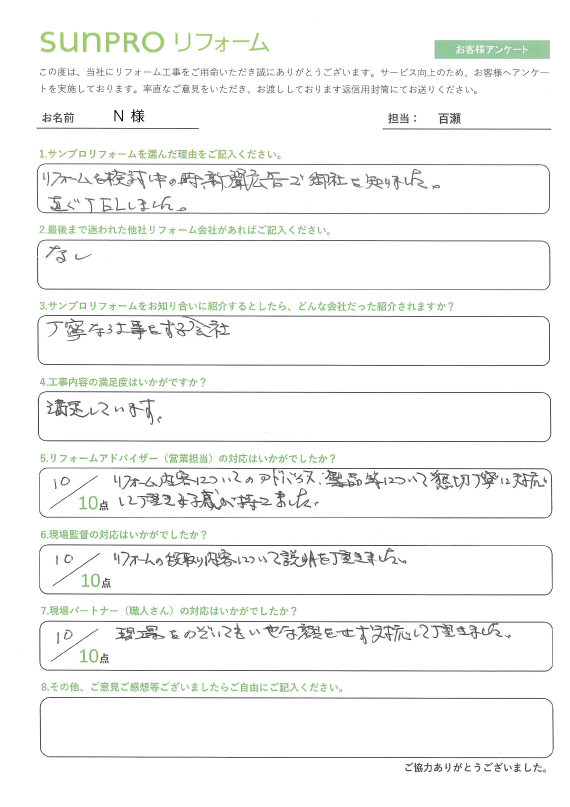 SUNPRO リフォーム
お客様アンケート
この度は、当社にリフォーム工事をご用命いただき誠にありがとうございます。サービス向上のため、お客様へアンケー
トを実施しております。率直なご意見をいただき、お渡ししております返信用封筒にてお送りください。
お名前 N 様 担当： 百瀬
1.サンプロリフォームを選んだ理由をご記入ください。
リフォームを検討中の時、新聞広告で御社を知りました。
直ぐTELしました。
2.最後まで迷われた他社リフォーム会社があればご記入ください。
なし
3.サンプロリフォームをお知り合いに紹介するとしたら、どんな会社だった紹介されますか？
丁寧な仕事をする会社
4.工事内容の満足度はいかがですか？
満足しています。
5.リフォームアドバイザー（営業担当）の対応はいかがでしたか？
10 リフォーム内容についてのアドバイス、製品等について懇切丁寧に対応
10点 して頂き好感が持てました。
6.現場監督の対応はいかがでしたか？
10 リフォームの段取り内容について説明を頂きました。
10点
7.現場パートナー（職人さん）の対応はいかがでしたか？
10 現場をのぞいてもいやな顔をせず対応して頂きました。
10点
8.その他、ご意見ご感想等ございましたらご自由にご記入ください。
ご協力ありがとうございました。